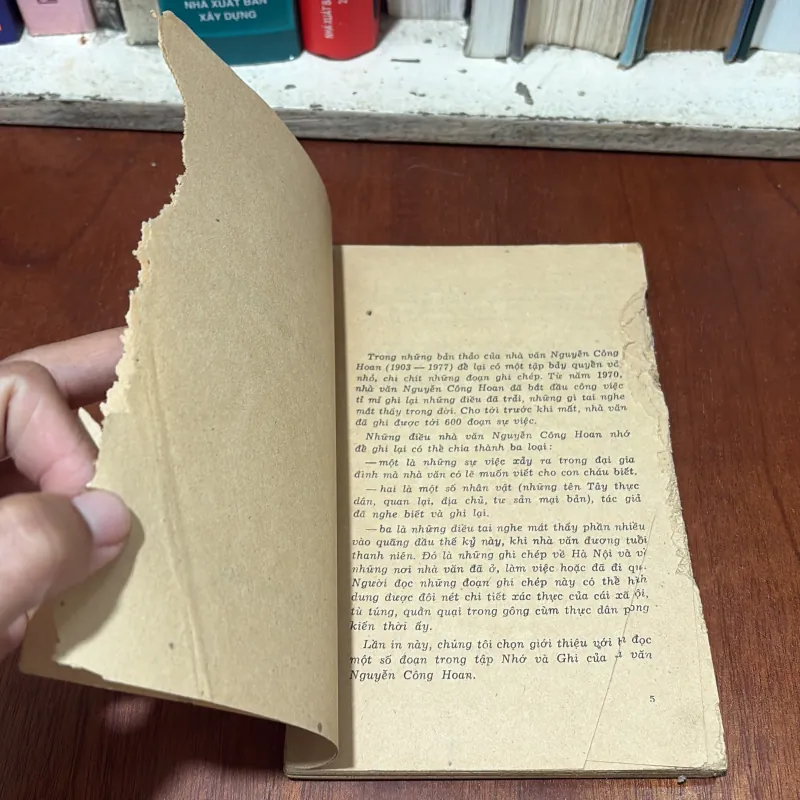 NHÀ XUẤT BẢN
XÂY DỰNG
Trong những bản thảo của nhà văn Nguyễn Công
Hoan (1903 — 1977) để lại có một tập bảy quyển vở
nhỏ, chi chít những đoạn ghi chép. Từ năm 1970,
nhà văn Nguyễn Công Hoan đã bắt đầu công việc
tỉ mỉ ghi lại những điều đã trải, những gì tai nghe
mắt thấy trong đời. Cho tới trước khi mất, nhà văn
đã ghi được tới 600 đoạn sự việc.
Những điều nhà văn Nguyễn Công Hoan nhớ
để ghi lại có thể chia thành ba loại :
— một là những sự việc xảy ra trong đại gia
đình mà nhà văn có lẽ muốn viết cho con cháu biết.
— hai là một số nhân vật (những tên Tây thực
dân, quan lại, địa chủ, tư sản mại bản), tác giả
đã nghe biết và ghi lại.
— ba là những điều tai nghe mắt thấy phần nhiều
vào quãng đầu thế kỷ này, khi nhà văn đương tuổi
thanh niên. Đó là những ghi chép về Hà Nội và
những nơi nhà văn đã ở, làm việc hoặc đã đi
Người đọc những đoạn ghi chép này có thể
dung được đôi nét chi tiết xác thực của cái xã
tù túng, quằn quại trong gông cùm thực dân
kiến thời ấy.
Lần in này, chúng tôi chọn giới thiệu với đọc
một số đoạn trong tập Nhớ và Ghi của văn
Nguyễn Công Hoan.
5